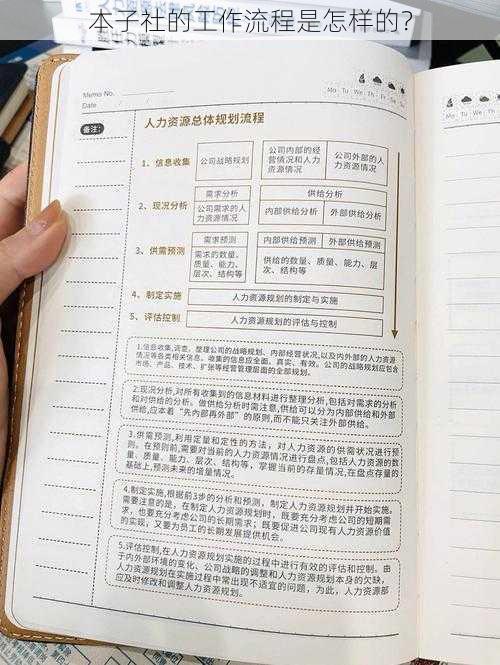 本子社的工作流程是怎样的？
Memo No.
Date
Mo Tu We Th Fr Sa Su
备注：
人力资源总体规划流程
1、信息收集
公司战略规划
公司内部的经
营情况和人力
资源情况
公司外部的人
力资源情况
2、现况分析
需求分析
公司需求的人
力资源情况
供给分析
内部供给分析
外部供给分析
3、供需预测
需求预测
需求的数量、
质量、能力、
层次、结构等
内部供给预测
外部供给预测
供给的数量、质量、能力、层
次、结构等
4、制定实施
人力资源规划的制定与实施
5、评估控制
人力资源规划的评估与控制
1.信息收集,调查、整理公司的战略规划、内部经营状况,以及内外部的人力资源
情况等各类相关信息。收集的信息应全面、真实、有效。公司战略规划应包含
市场、产品、技术、扩张等经营管理层面的全部规划。
2.现况分析,对所有收集到的信息材料进行整理分析,包括对需求的分析
和对供给的分析。做供给分析时需注意,供给可以分为内部供给和外部
供给,应本着“先内部再外部”的原则,而不能只关注外部供给。
3.供需预测,利用定量和定性的方法，对人力资源的供需状况进行预
测。在预测前,需要对当前的人力资源情况进行盘点,包括人力资源的数
量、质量、能力、层次、结构等，掌握当前的存量情况,在盘点存量的
基础上,预测未来的增量情况。
4.制定实施,根据前3步的分析和预测，制定人力资源规划并开始实施。
需要注意的是，在制定人力资源规划时，既要充分考虑公司的短期需
求，也要充分考虑公司的长期需求；既要促进公司现有人力资源价值
的实现，又要为员工的长期发展提供机会。
5.评估控制,在人力资源规划实施的过程中进行有效的评估和控制。由
于内外部环境的变化、公司战略的调整和人力资源规划本身的欠缺，
人力资源规划在实施过程中常出现不适宜的问题，为此，人力资源部
应及时修改和调整人力资源规划。
Mo Tu We